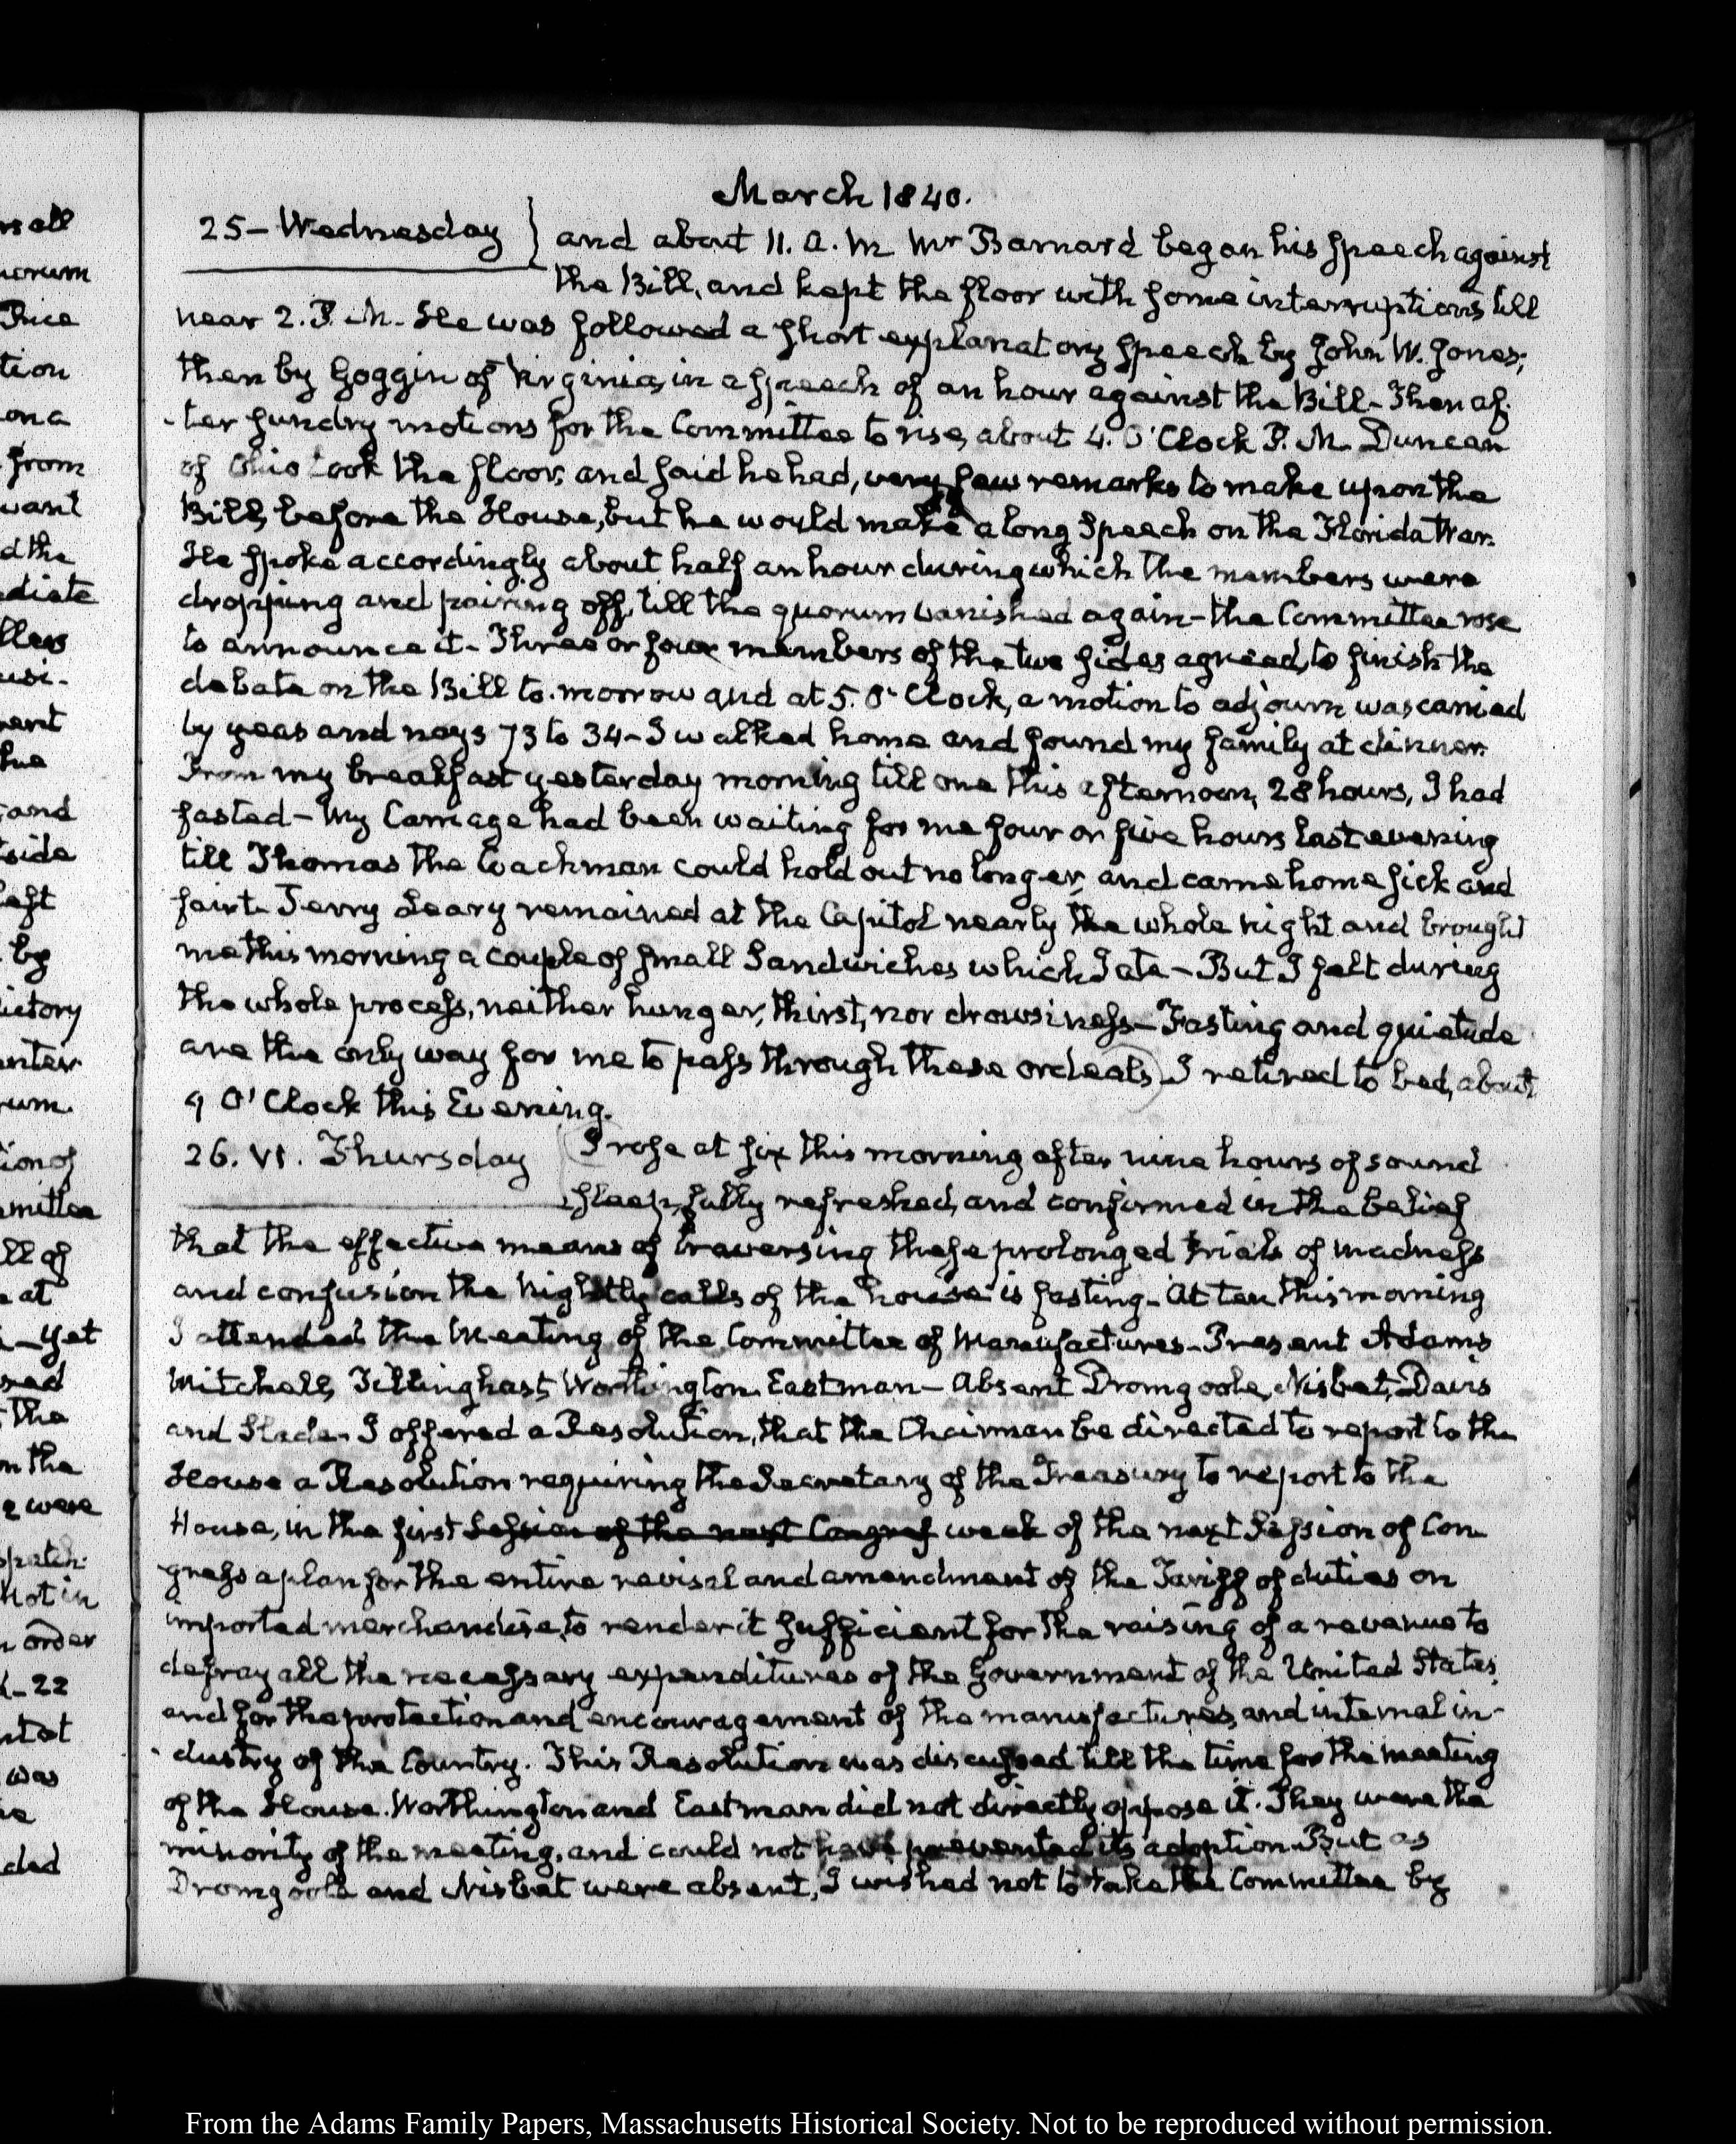 March 1840.
25 — Wednesday } and about 11. A. M Mr Barnard began his speech against
the Bill, and kept the floor with some interruptions till
near 2. P. M. He was followed a short explanatory speech by John W. Jones;
then by Goggin of Virginia, in a speech of an hour against the Bill - Then af-
-ter sundry motions for the Committee to rise, about 4. O'Clock P. M. Duncan
of Ohio took the floor, and said he had, very few remarks to make upon the
Bill, before the House, but he would make a long Speech on the Florida War.
He spoke accordingly about half an hour during which the members were
dropping and pairing off, till the quorum vanished again - the Committee rose
to announce it - Three or four members of the two sides agreed, to finish the
debate on the Bill to-morrow and at 5. O'Clock, a motion to adjourn was carried
by yeas and nays 73 to 34 - I walked home and found my family at dinner.
From my breakfast yesterday morning till one this afternoon, 28 hours, I had
fasted - My Carriage had been waiting for me four or five hours last evening
till Thomas the Coachman could hold out no longer, and came home sick and
faint. Jerry Leary remained at the Capitol nearly the whole night and brought
me this morning a couple of small Sandwiches which I ate - But I felt during
the whole process, neither hunger, thirst, nor drowsiness - Fasting and quietude
are the only way for me to pass through these ordeals) I retired to bed, about
9 O'Clock this Evening.
26. VI. Thursday I rose at six this morning after nine hours of sound
sleep, fully refreshed, and confirmed in the belief
that the effective means of traversing these prolonged trials of madness
and confusion the nightly calls of the house is fasting - At ten this morning
I attended the Meeting of the Committee of Manufactures - Present Adams
Mitchell, Tillinghast, Worthington. Eastman - Absent Dromgoole, Nisbet, Davis
and Slade - I offered a Resolution, that the Chairman be directed to report to the
House a Resolution requiring the Secretary of the Treasury to report to the
House, in the first Session of the next Congress week of the next Session of Con-
gress a plan for the entire revisal and amendment of the Tariff of duties on
imported merchandise, to render it sufficient for the raising of a revenue to
defray all the necessary expenditures of the Government of the United States,
and for the protection and encouragement of the manufactures, and internal in-
-dustry of the Country. This Resolution was discussed till the time for the meeting
of the House. Worthington and Eastman did not directly oppose it. They were the
minority of the meeting, and could not have prevented its adoption. But as
Dromgoole and Nisbet were absent, I wished not to take the Committee by
From the Adams Family Papers, Massachusetts Historical Society. Not to be reproduced without permission.